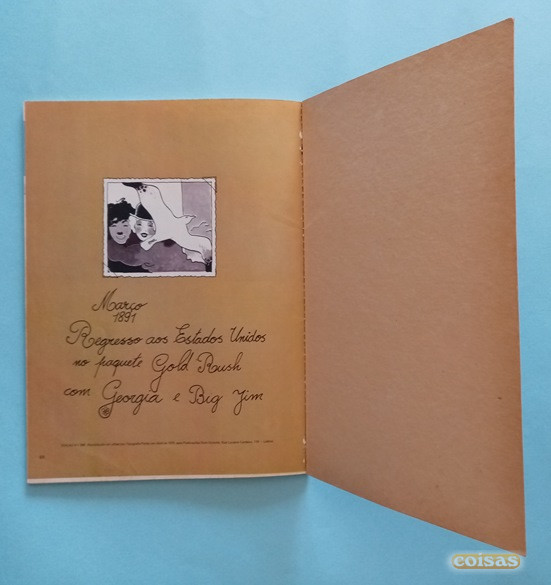 Março
1891
Regresso aos Estados Unidos
no paquete Gold Rush
com Georgia e Big Jim
coisas